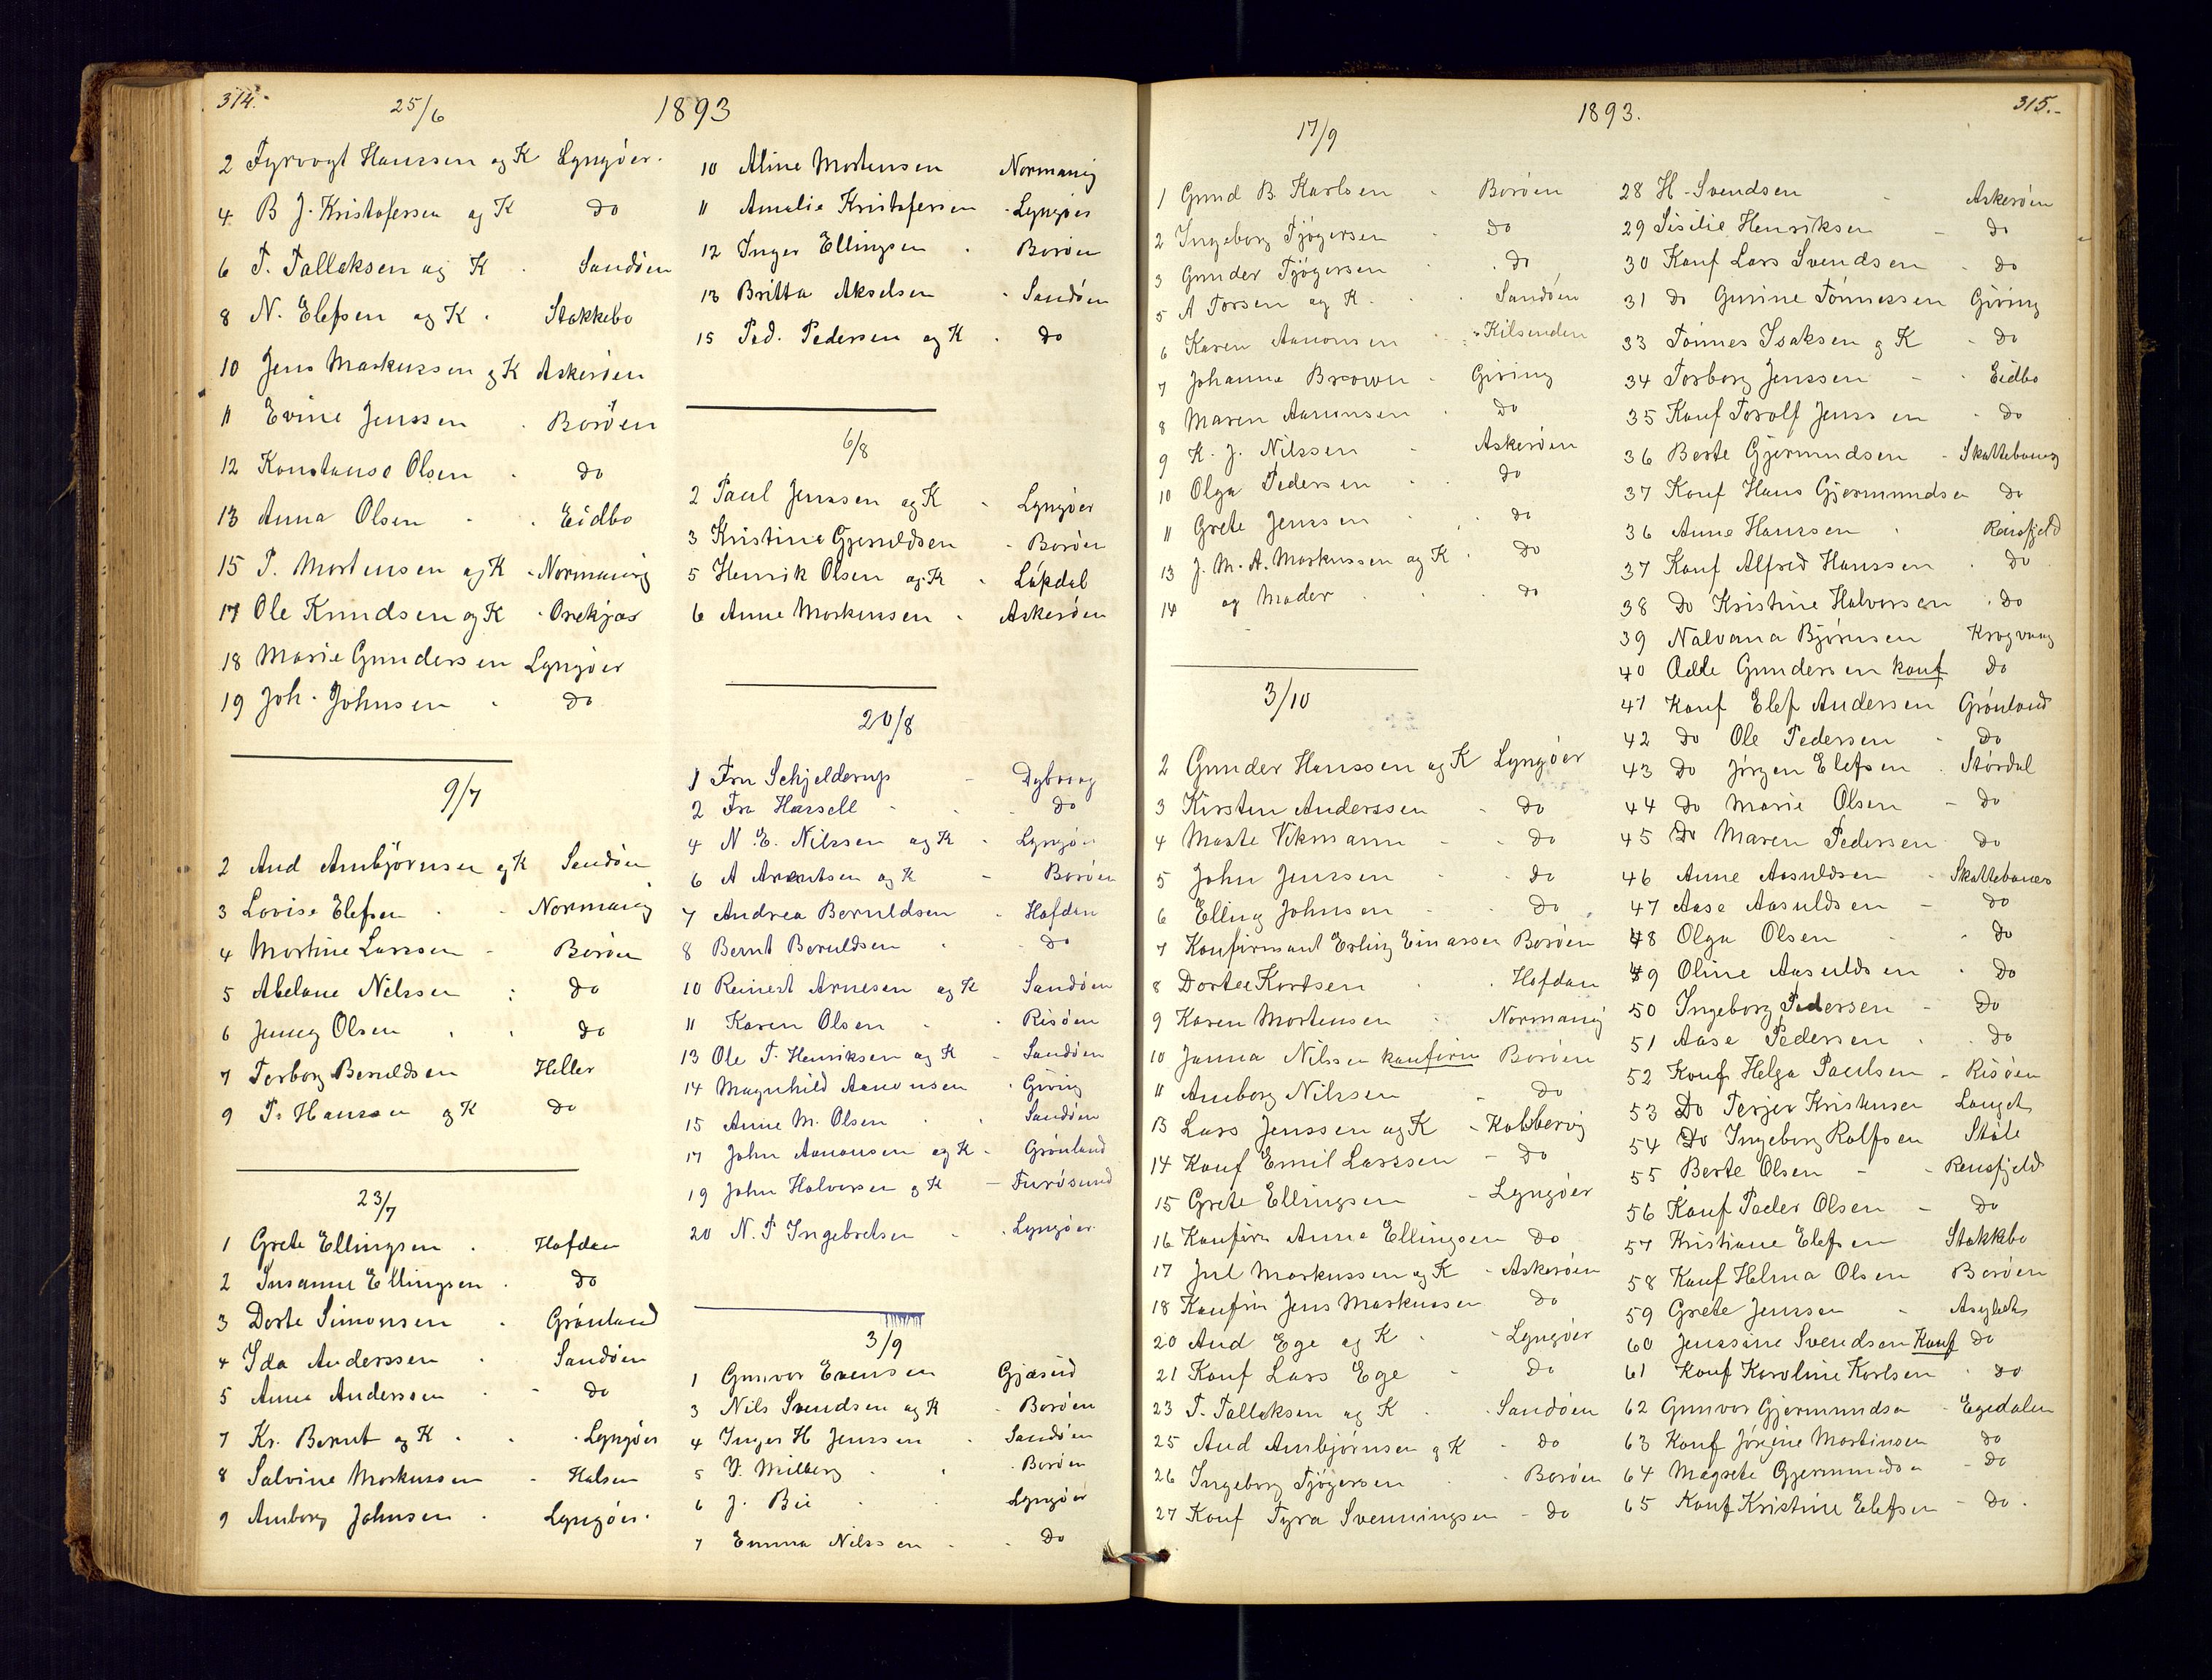 314.
25/6
1893
2 Fyrvogt Hanssen og K Lyngöer.
4 B J. Kristofersen og K do
6 T. Tallaksen og K Sandöen
8 N. Elefsen og K Stokkebo
10 Jens Markussen og K Askeröen
11 Evine Jenssen Boröen
12 Konstanse Olsen do
13 Anna Olsen Eidbo
15 P. Mortensen og K Normanvig
17 Ole Knudsen og K
18 Marie Gundersen Lyngöer
19 Joh. Johnsen do
9/7
2 And Ambjörnsen og K Sandöen
3 Lovise Elefsen Normanvig
4 Martine Larssen Boröen
5 Abelone Nilssen do
6 Jenny Olsen do
7 Torborg Beruldsen Heller
9 P. Hanssen og K do
23/7
1 Grete Ellingsen Hofdan
2 Susanne Ellingsen do
3 Dorte Simonsen Grönland
4 Ida Anderssen Sandöen
5 Anna Anderssen do
7 Kr. Bernt og K Lyngöer
8 Salvine Markussen Holsen
9 Amborg Johnsen Lyngöer.
10 Aline Mortensen Normanvig
11 Amalie Kristofersen Lyngöer
12 Inger Ellingsen Boröen
13 Britta Akselsen Sandöen
15 Ped. Pedersen og K do
6/8
2 Paul Jenssen og K Lyngöer
3 Kristine Gjeruldsen Boröen
5 Henrik Olsen og K Löpdal
6 Anne Markussen Askeröen
20/8
1 Fru Schjelderup Dybvaag
2 Fru Hassell do
4 N. E. Nilssen og K Lyngöer
6 A Arentsen og K Boröen
7 Andrea Beruldsen Hofdan
8 Bernt Beruldsen do
10 Reinert Arnesen og K Sandöen
11 Karen Olsen Risöen
13 Ole T. Henriksen og K Sandöen
14 Magnhild Aanonsen Giving
15 Anne M. Olsen Sandöen
17 John Aanonsen og K Grönland
19 John Halvorsen og K Furösund
20 N. P Ingebretsen Lyngöer
3/9
1 Gunvor Evensen Gjæsud
3 Nils Svendsen og K Boröen
4 Inger H Jenssen Sandöen
5 V. Milberg Boröen
6 J. Bie Lyngöer
7 Emma Nilssen do
315.
1893.
17/9
1 Gund B. Karlsen Boröen
2 Ingeborg Tjögersen do
3 Gunder Tjögersen do
5 A Torsen og K. Sandöen
6 Karen Aanonsen Kilsenden
7 Johanna Brown Giving
8 Maren Aanonsen do
9 K. J. Nilssen Askeröen
10 Olga Pedersen do
11 Grete Jenssen do
13 J. M. A. Markussen og K do
14 og Moder do
3/10
2 Gunder Hanssen og K Lyngöer
3 Kirsten Anderssen do
4 Marte Vikmann do
5 John Jenssen do
6 Elling Johnsen do
7 Konfirmant Erling Einarsen Boröen
8 Dortee Kortsen Hofdan
9 Karen Mortensen Normanvig
10 Janna Nilssen konfirm Boröen
11 Amborg Nilssen do
13 Lars Jenssen og K Kobbervig
14 Konf Emil Larssen do
15 Grete Ellingsen Lyngöer
16 Konfirm Anna Ellingsen do
17 Jul Markussen og K Askeröen
18 Konfirm Jens Markussen do
20 And Ege og K Lyngöer
21 Konf Lars Ege do
23 T. Tallaksen og K Sandöen
25 And Ambjörnsen og K do
26 Ingeborg Tjögersen Boröen
27 Konf Tyra Svenningsen do
28 H. Svendsen Askeröen
29 Sisilie Henriksen do
30 Konf Lars Svendsen do
31 do Gurine Tönnessen Giving
33 Tönnes Isaksen og K do
34 Torborg Jenssen Eidbo
35 Konf Torolf Jenssen do
36 Berte Gjermundsen Skottebaug
37 Konf Hans Gjermundsen do
36 Anne Hanssen Rensfjeld
37 Konf Alfred Hanssen do
38 Do Kristine Halvorsen do
39 Nalvana Björnsen Krogvaag
40 Odde Gundersen konf do
41 Konf Elef Andersen Grönland
42 do Ole Pedersen do
43 Do Jörgen Elefsen Stördal
44 do Marie Olsen do
45 Do Maren Pedersen do
46 Anne Aasuldsen Skottebaug
47 Aase Aasuldsen do
48 Olga Olsen do
49 Oline Aasuldsen do
50 Ingeborg Pedersen Do
51 Aase Pedersen do
52 Konf Helga Paulsen Risöen
53 Do Terjer Kristensen Langet
54 Do Ingeborg Rolfsen Stöle
55 Berte Olsen Rensfjeld
56 Konf Peder Olsen do
57 Kristiane Elefsen Stokkebo
58 Konf Helma Olsen Boröen
59 Grete Jenssen Asylet
60 Jenssine Svendsen Konf do
61 Konf Karoline Karlsen do
62 Gunvor Gjermundsen Egedalen
63 Konf Jörgine Martinsen do
64 Magrete Gjermundsen do
65 Konf Kristine Elefsen do.